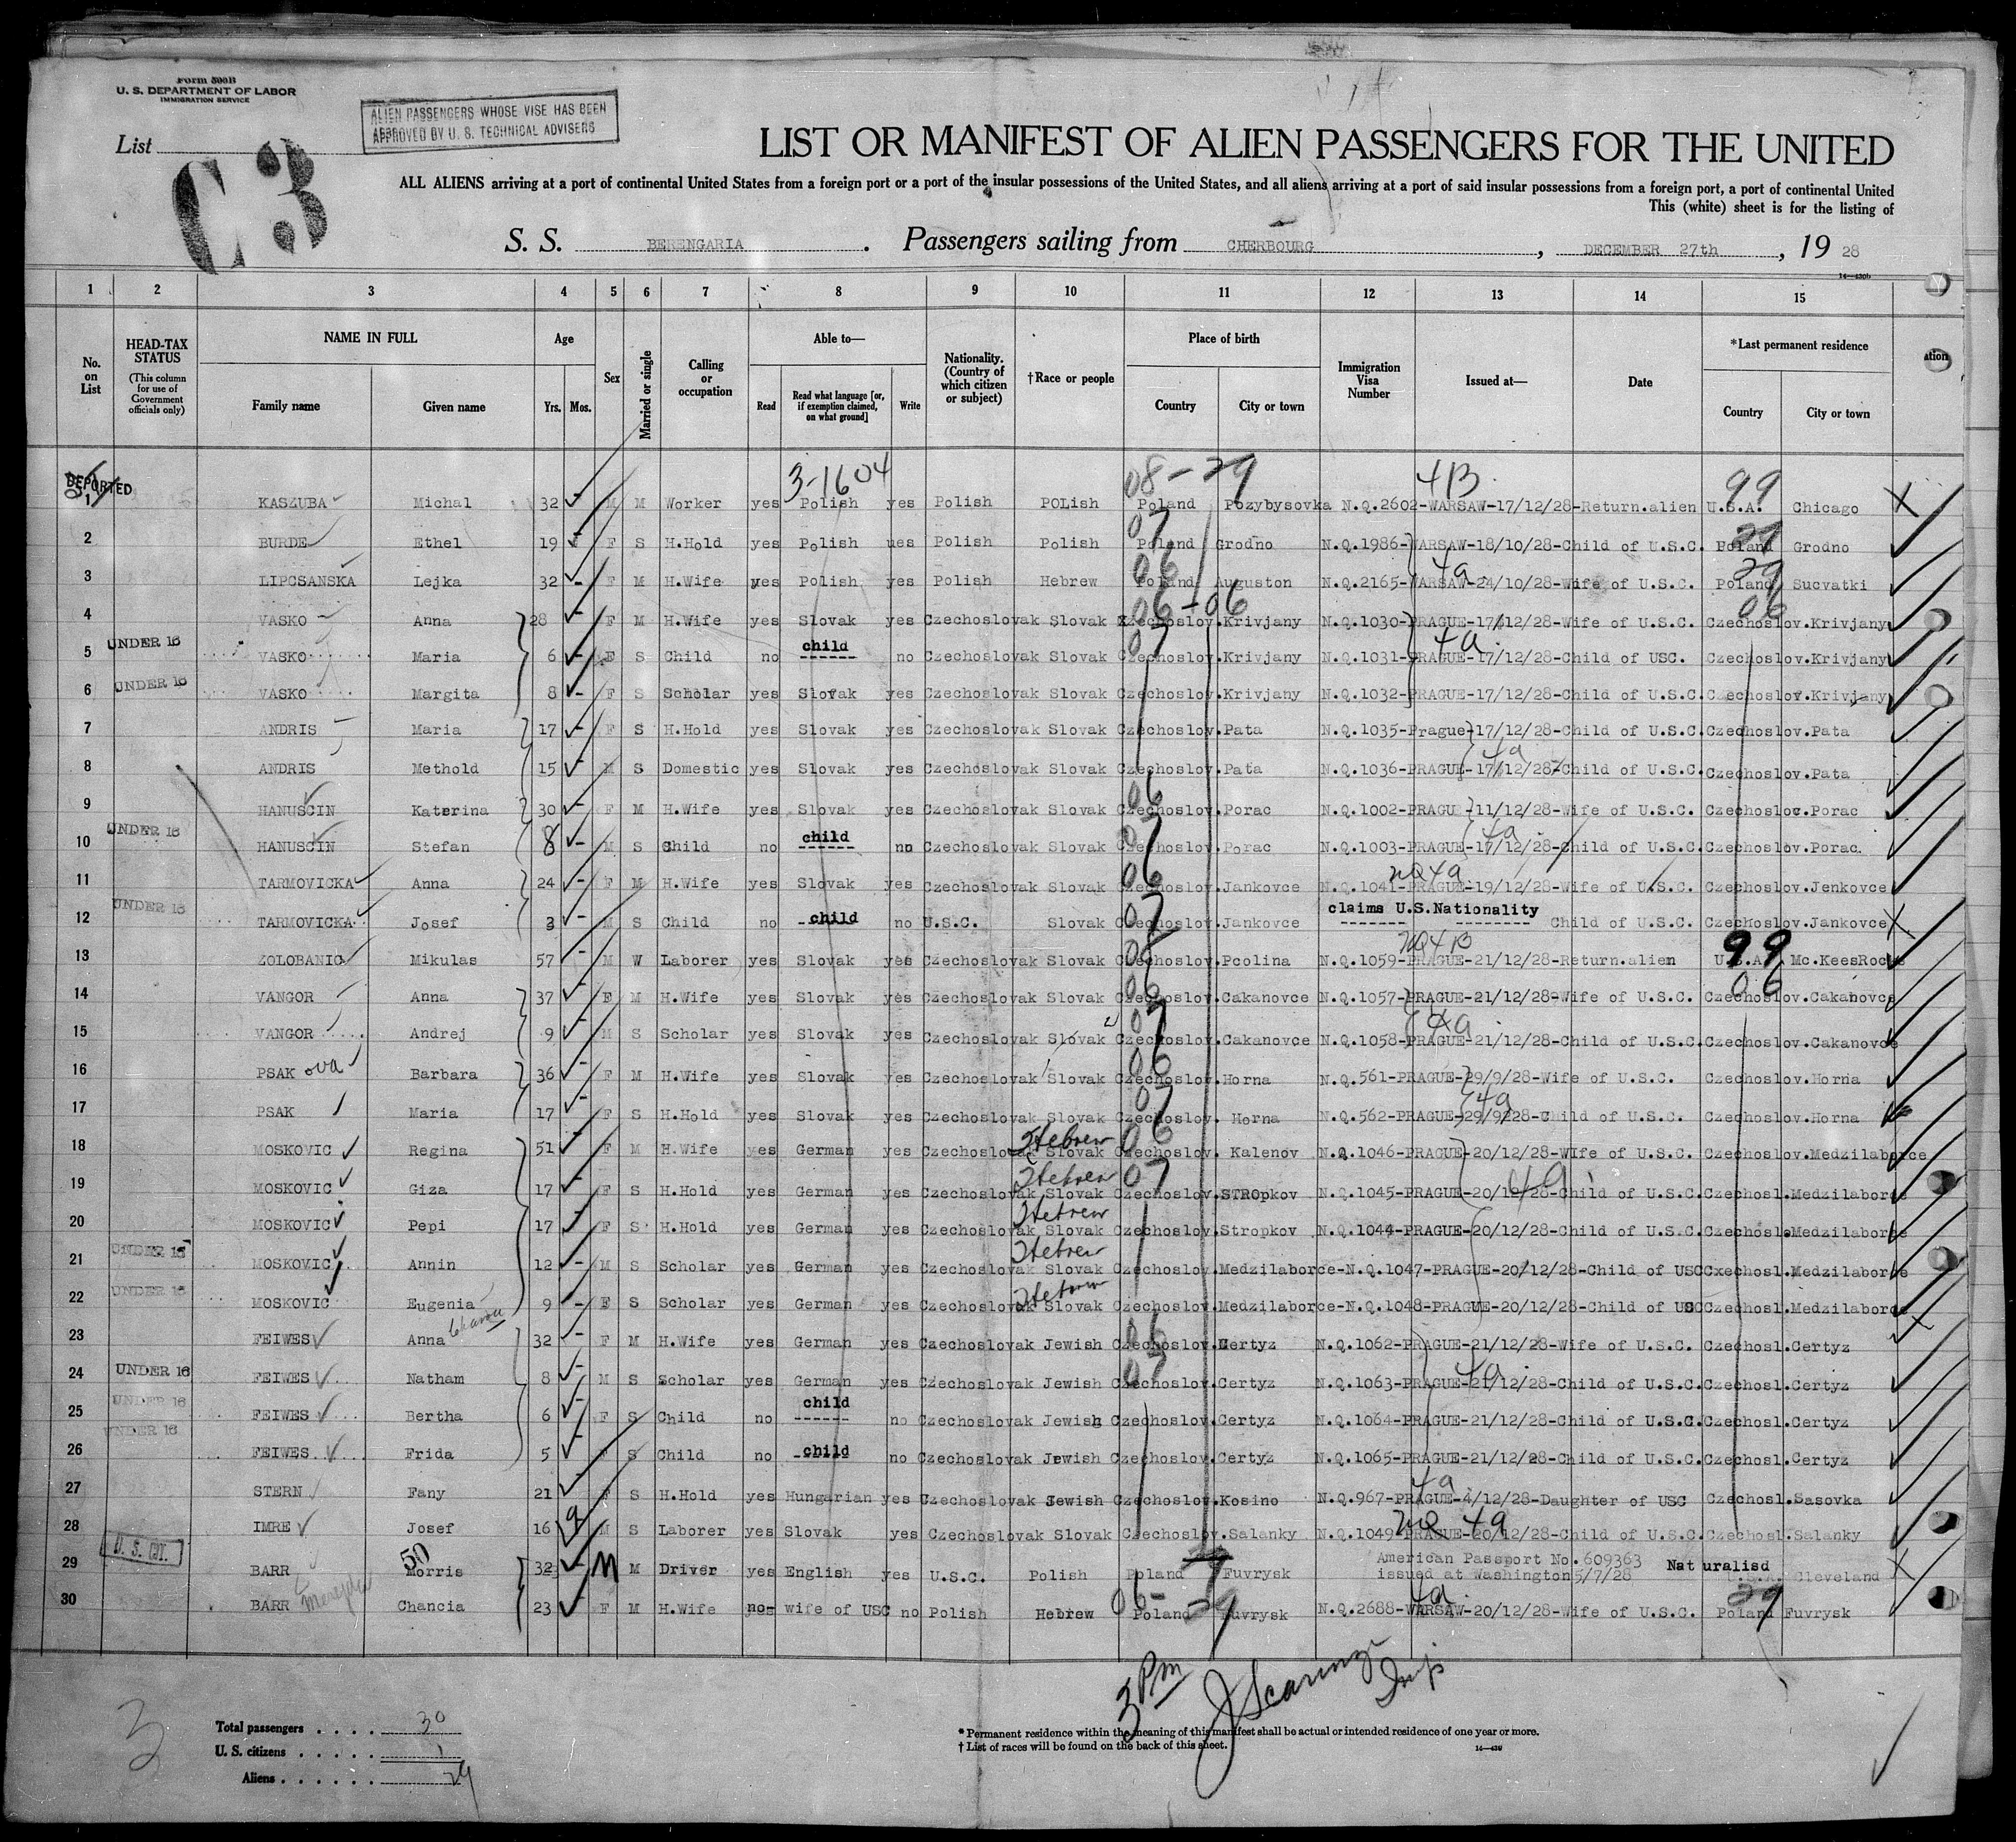 Form 500B
U. S. DEPARTMENT OF LABOR
IMMIGRATION SERVICE
ALIEN PASSENGERS WHOSE VISE HAS BEEN
APPROVED BY U. S. TECHNICAL ADVISERS
List
C3
LIST OR MANIFEST OF ALIEN PASSENGERS FOR THE UNITED
ALL ALIENS arriving at a port of continental United States from a foreign port or a port of the insular possessions of the United States, and all aliens arriving at a port of said insular possessions from a foreign port, a port of continental United
This (white) sheet is for the listing of
S. S. BERENGARIA. Passengers sailing from CHERBOURG, DECEMBER 27th, 19 28
1 2 3 4 5 6 7 8 9 10 11 12 13 14 15
No. on List
HEAD-TAX STATUS (This column for use of Government officials only)
NAME IN FULL Family name Given name
Age Yrs. Mos.
Sex
Married or single
Calling or occupation
Able to— Read Read what language [or, if exemption claimed, on what ground] Write
Nationality. (Country of which citizen or subject)
†Race or people
Place of birth Country City or town
Immigration Visa Number
Issued at—
Date
*Last permanent residence Country City or town
3-1604 08-29 4B 99
DEPORTED
1 KASZUBA Michal 32 M M Worker yes Polish yes Polish POLish Poland Pozybysovka N.Q.2602-WARSAW-17/12/28-Return.alien U.S.A. Chicago
2 BURDE Ethel 19 F S H.Hold yes Polish ues Polish Polish Poland Grodno N.Q.1986-WARSAW-18/10/28-Child of U.S.C. Poland Grodno
3 LIPCSANSKA Lejka 32 F M H.Wife yes Polish yes Polish Hebrew Poland Auguston N.Q.2165-WARSAW-24/10/28-Wife of U.S.C. Poland Sucvatki
4 VASKO Anna 28 F M H.Wife yes Slovak yes Czechoslovak Slovak Czechoslov.Krivjany N.Q.1030-PRAGUE-17/12/28-Wife of U.S.C. Czechoslov.Krivjany
5 UNDER 16 VASKO Maria 6 F S Child no child no Czechoslovak Slovak Czechoslov.Krivjany N.Q.1031-PRAGUE-17/12/28-Child of USC. Czechoslov.Krivjany
6 UNDER 16 VASKO Margita 8 F S Scholar yes Slovak yes Czechoslovak Slovak Czechoslov.Krivjany N.Q.1032-PRAGUE-17/12/28-Child of U.S.C.Czechoslov.Krivjany
7 ANDRIS Maria 17 F S H.Hold yes Slovak yes Czechoslovak Slovak Czechoslov.Pata N.Q.1035-Prague-17/12/28-Child of U.S.C.Czechoslov.Pata
8 ANDRIS Methold 15 M S Domestic yes Slovak yes Czechoslovak Slovak Czechoslov.Pata N.Q.1036-PRAGUE-17/12/28-Child of U.S.C.Czechoslov.Pata
9 HANUSCIN Katerina 30 F M H.Wife yes Slovak yes Czechoslovak Slovak Czechoslov.Porac N.Q.1002-PRAGUE-11/12/28-Wife of U.S.C. Czechoslov.Porac
10 UNDER 16 HANUSCIN Stefan 8 M S Child no child no Czechoslovak Slovak Czechoslov.Porac N.Q.1003-PRAGUE-17/12/28-Child of U.S.C.Czechoslov.Porac.
11 TARMOVICKA Anna 24 F M H.Wife yes Slovak yes Czechoslovak Slovak Czechoslov.Jankovce N.Q.1041-PRAGUE-19/12/28-Wife of U.S.C. Czechoslov.Jenkovce
claims U.S.Nationality
12 UNDER 16 TARMOVICKA Josef 3 M S Child no child no U.S.C. Slovak Czechoslov.Jankovce Child of U.S.C. Czechoslov.Jankovce
13 ZOLOBANIC Mikulas 57 M W Laborer yes Slovak yes Czechoslovak Slovak Czechoslov.Pcolina N.Q.1059-PRAGUE-21/12/28-Return.alien U.S.A. Mc.KeesRocks
14 VANGOR Anna 37 F M H.Wife yes Slovak yes Czechoslovak Slovak Czechoslov.Cakanovce N.Q.1057-PRAGUE-21/12/28-Wife of U.S.C. Czechoslov.Cakanovce
15 VANGOR Andrej 9 M S Scholar yes Slovak yes Czechoslovak Slovak Czechoslov.Cakanovce N.Q.1058-PRAGUE-21/12/28-Child of U.S.C.Czechoslov.Cakanovce
16 PSAK ova Barbara 36 F M H.Wife yes Slovak yes Czechoslovak Slovak Czechoslov.Horna N.Q.561-PRAGUE-29/9/28-Wife of U.S.C. Czechoslov.Horna
17 PSAK Maria 17 F S H.Hold yes Slovak yes Czechoslovak Slovak Czechoslov. Horna N.Q.562-PRAGUE-29/9/28-Child of U.S.C. Czechoslov.Horna
18 MOSKOVIC Regina 51 F M H.Wife yes German yes Czechoslovak Slovak Hebrew Czechoslov. Kalenov N.Q.1046-PRAGUE-20/12/28-WIfe of U.S.C. Czechoslov.Medzilaborce
19 MOSKOVIC Giza 17 F S H.Hold yes German yes Czechoslovak Slovak Hebrew Czechoslov.STROpkov N.Q.1045-PRAGUE-20/12/28-Child of U.S.C.Czechosl.Medzilaborce
20 MOSKOVIC Pepi 17 F S H.Hold yes German yes Czechoslovak Slovak Hebrew Czechoslov.Stropkov N.Q.1044-PRAGUE-20/12/28-Child of U.S.C.Czechosl.Medzilaborce
21 UNDER 16 MOSKOVIC Annin 12 M S Scholar yes German yes Czechoslovak Slovak Hebrew Czechoslov.Medzilaborce-N.Q.1047-PRAGUE-20/12/28-Child of USCCxechosl.Medzilaborce
22 UNDER 16 MOSKOVIC Eugenia 9 F S Scholar yes German yes Czechoslovak Slovak Hebrew Czechoslov.Medzilaborce-N.Q.1048-PRAGUE-20/12/28-Child of USCCzechosl.Medzilaborce
23 FEIWES Anna 32 F M H.Wife yes German yes Czechoslovak Jewish Czechoslov.Certyz N.Q.1062-PRAGUE-21/12/28-Wife of U.S.C. Czechosl.Certyz
24 UNDER 16 FEIWES Natham 8 M S Scholar yes German yes Czechoslovak Jewish Czechoslov.Certyz N.Q.1063-PRAGUE-21/12/28-Child of U.S.C.Czechosl.Certyz
25 UNDER 16 FEIWES Bertha 6 F S Child no child no Czechoslovak Jewish Czechoslov.Certyz N.Q.1064-PRAGUE-21/12/28-Child of U.S.C.Czechosl.Certyz
26 UNDER 16 FEIWES Frida 5 F S Child no child no Czechoslovak Jewish Czechoslov.Certyz N.Q.1065-PRAGUE-21/12/28-Child of U.S.C.Czechosl.Certyz
27 STERN Fany 21 F S H.Hold yes Hungarian yes Czechoslovak Jewish Czechoslov.Kosino N.Q.967-PRAGUE-4/12/28-Daughter of USC Czechosl.Sasovka
28 IMRE Josef 16 M S Laborer yes Slovak yes Czechoslovak Slovak Czechoslov.Salanky N.Q.1049-PRAGUE-20/12/28-Child of U.S.C.Czechosl.Salanky
U. S. CIT.
American Passport No.609363 Naturalisd
29 BARR Morris 32 M M Driver yes English yes U.S.C. Polish Poland Fuvrysk issued at Washington 5/7/28 U.S.A. Cleveland
30 BARR Chancia 23 F M H.Wife no wife of USC no Polish Hebrew Poland Fuvrysk N.Q.2688-WARSAW-20/12/28-Wife of U.S.C. Poland Fuvrysk
3 PM
Insp
3
Total passengers 30
U. S. citizens 1
Aliens 29
* Permanent residence within the meaning of this manifest shall be actual or intended residence of one year or more.
† List of races will be found on the back of this sheet.